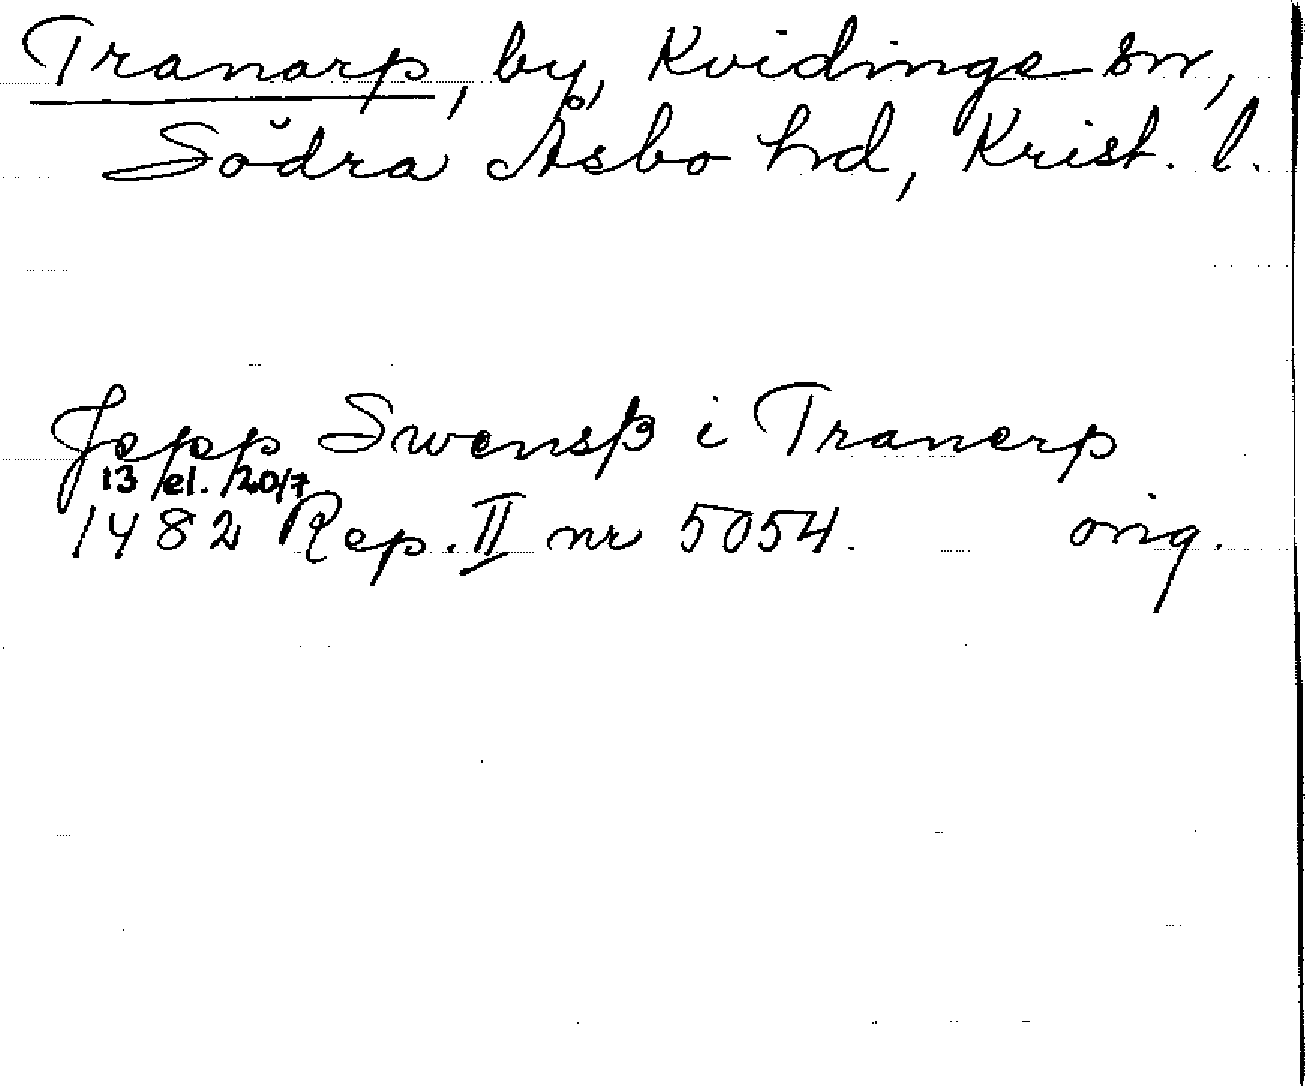 Tranarp, by, Kvidinge sn,
Södra Åsbo hd, Krist. l.
Jepp Swensß i Tranerp
13 el. 20/7
1482 Rep. II nr 5054. orig.